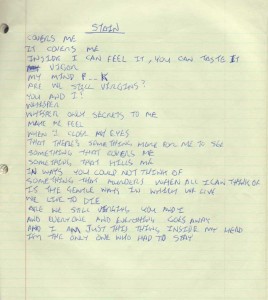 STAIN
COVERS ME
IT COVERS ME
INSIDE I CAN FEEL IT, YOU CAN TASTE IT
VIGOR
MY MIND F...K
ARE WE STILL VIRGINS?
YOU AND I?
WHISPER
WHISPER ONLY SECRETS TO ME
MAKE ME FEEL
WHEN I CLOSE MY EYES
THAT THERES SOMETHING MORE FOR ME TO SEE
SOMETHING THAT COVERS ME
SOMETHING THAT KILLS ME
IN WAYS YOU COULD NOT THINK OF
SOMETHING THAT MURDERS WHEN ALL I CAN THINK OF
IS THE GENTLE WAYS IN WHICH WE LOVE
WE LOVE TO DIE
ARE WE STILL VIRGINS YOU AND I
AND EVERYONE AND EVERYTHING GOES AWAY
AND I AM JUST THIS THING INSIDE MY HEAD
I'M THE ONLY ONE WHO HAD TO STAY